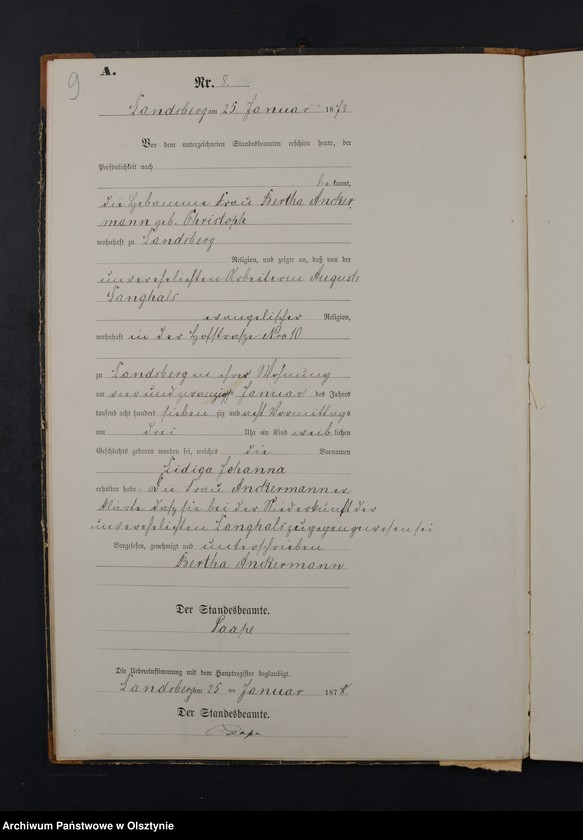 9
A.
Nr. 8.
Landsberg am 25 Januar 1878
Vor dem unterzeichneten Standesbeamten erschien heute, der
Persönlichkeit nach
bekannt,
die Hebamme Frau Bertha Ancker
mann geb. Christoph
wohnhaft zu Landsberg
Religion, und zeigte an, daß von der
unverehelichten Arbeiterin Auguste
Langhals
evangelischer Religion,
wohnhaft in der Hofstraße Nro 10
zu Landsberg in ihrer Wohnung
am vier und zwanzigsten Januar des Jahres
tausend acht hundert sieben zig und acht Vormittags
um drei Uhr ein Kind weiblichen
Geschlechts geboren worden sei, welches die Vornamen
Lidiga Johanna
erhalten habe. Die Frau Anckermann er
klärte daß sie bei der Niederkunft der
unverehelichten Langhals zugegen gewesen sei
Vorgelesen, genehmigt und unterschrieben
Bertha Anckermann
Der Standesbeamte.
Paape
Die Uebereinstimmung mit dem Hauptregister beglaubigt.
Landsberg am 25 ten Januar 1878
Der Standesbeamte.
Paape
Archiwum Państwowe w Olsztynie